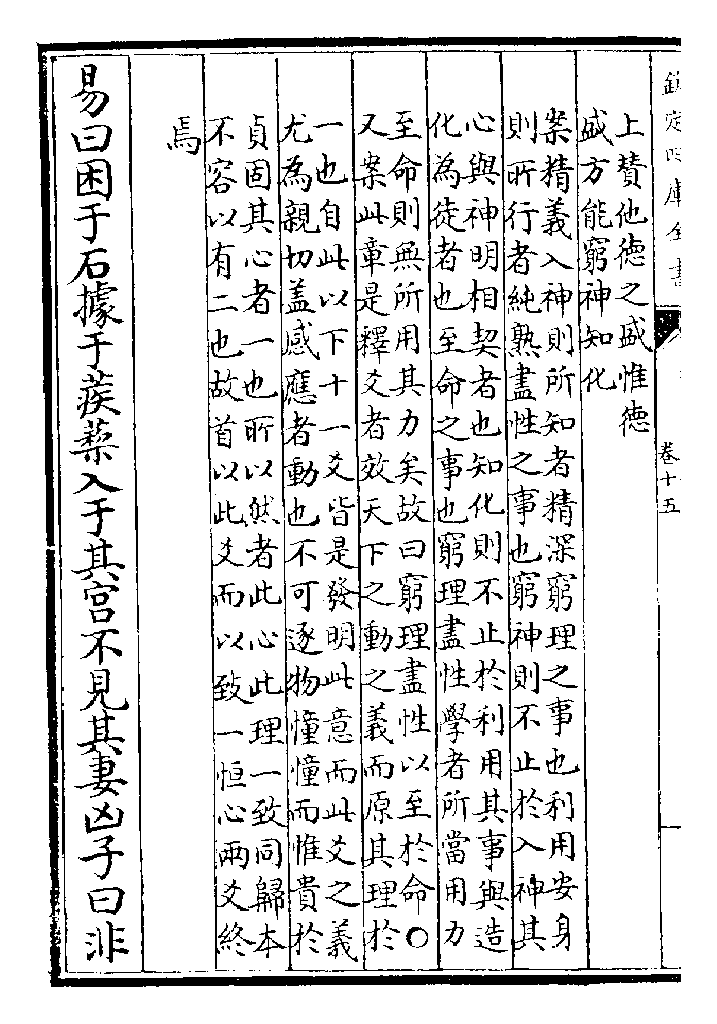 欽定四庫全書
卷十五
上贊他德之盛惟德
盛方能窮神知化
案精義入神則所知者精深窮理之事也利用安身
則所行者純熟盡性之事也窮神則不止於入神其
心與神明相契者也知化則不止於利用其事與造
化為徒者也至命之事也窮理盡性學者所當用力
至命則無所用其力矣故曰窮理盡性以至於命○
又案此章是釋爻者效天下之動之義而原其理於
一也自此以下十一爻皆是發明此意而此爻之義
尤為親切盖感應者動也不可逐物憧憧而惟貴於
貞固其心者一也所以然者此心此理一致同歸本
不容以有二也故首以此爻而以致一恒心兩爻終
焉
易曰困于石據于蒺蔾入于其宫不見其妻凶子曰非